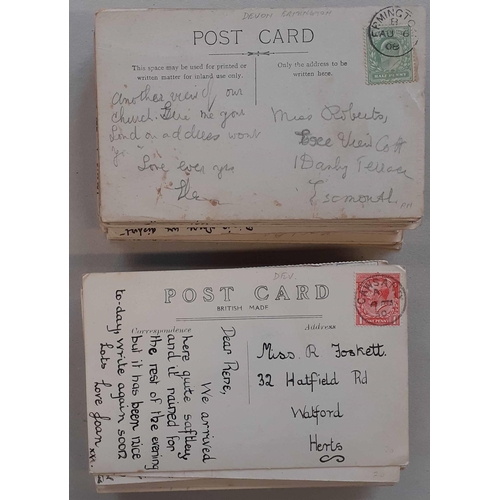 DEVON ERMINGTON
POST CARD
This space may be used for printed or
written matter for inland use only.
Only the address to be
written here.
ERMINGTON
B
AU 6
08
another view of our
church. Give me your
London address wont
ya
Love ever yrs
Miss Roberts,
View Cott
1 Danby Terrace
Exmouth
DEV.
POST CARD
BRITISH MADE
Correspondence
Address
CAWSAND
Dear Rene,
We arrived
here quite saftley
and it rained for
the rest of the evening
but it has been nice
to-day, write again soon
Lots Love Joan xxx
Miss. R Foskett.
32 Hatfield Rd
Watford
Herts